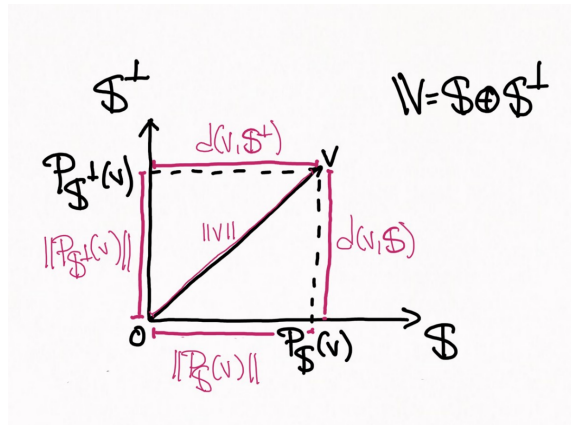 𝕊⊥
𝕍=𝕊⊕𝕊⊥
d(v,𝕊⊥)
v
P𝕊⊥(v)
||v||
||P𝕊⊥(v)||
d(v,𝕊)
0
P𝕊(v)
𝕊
||P𝕊(v)||